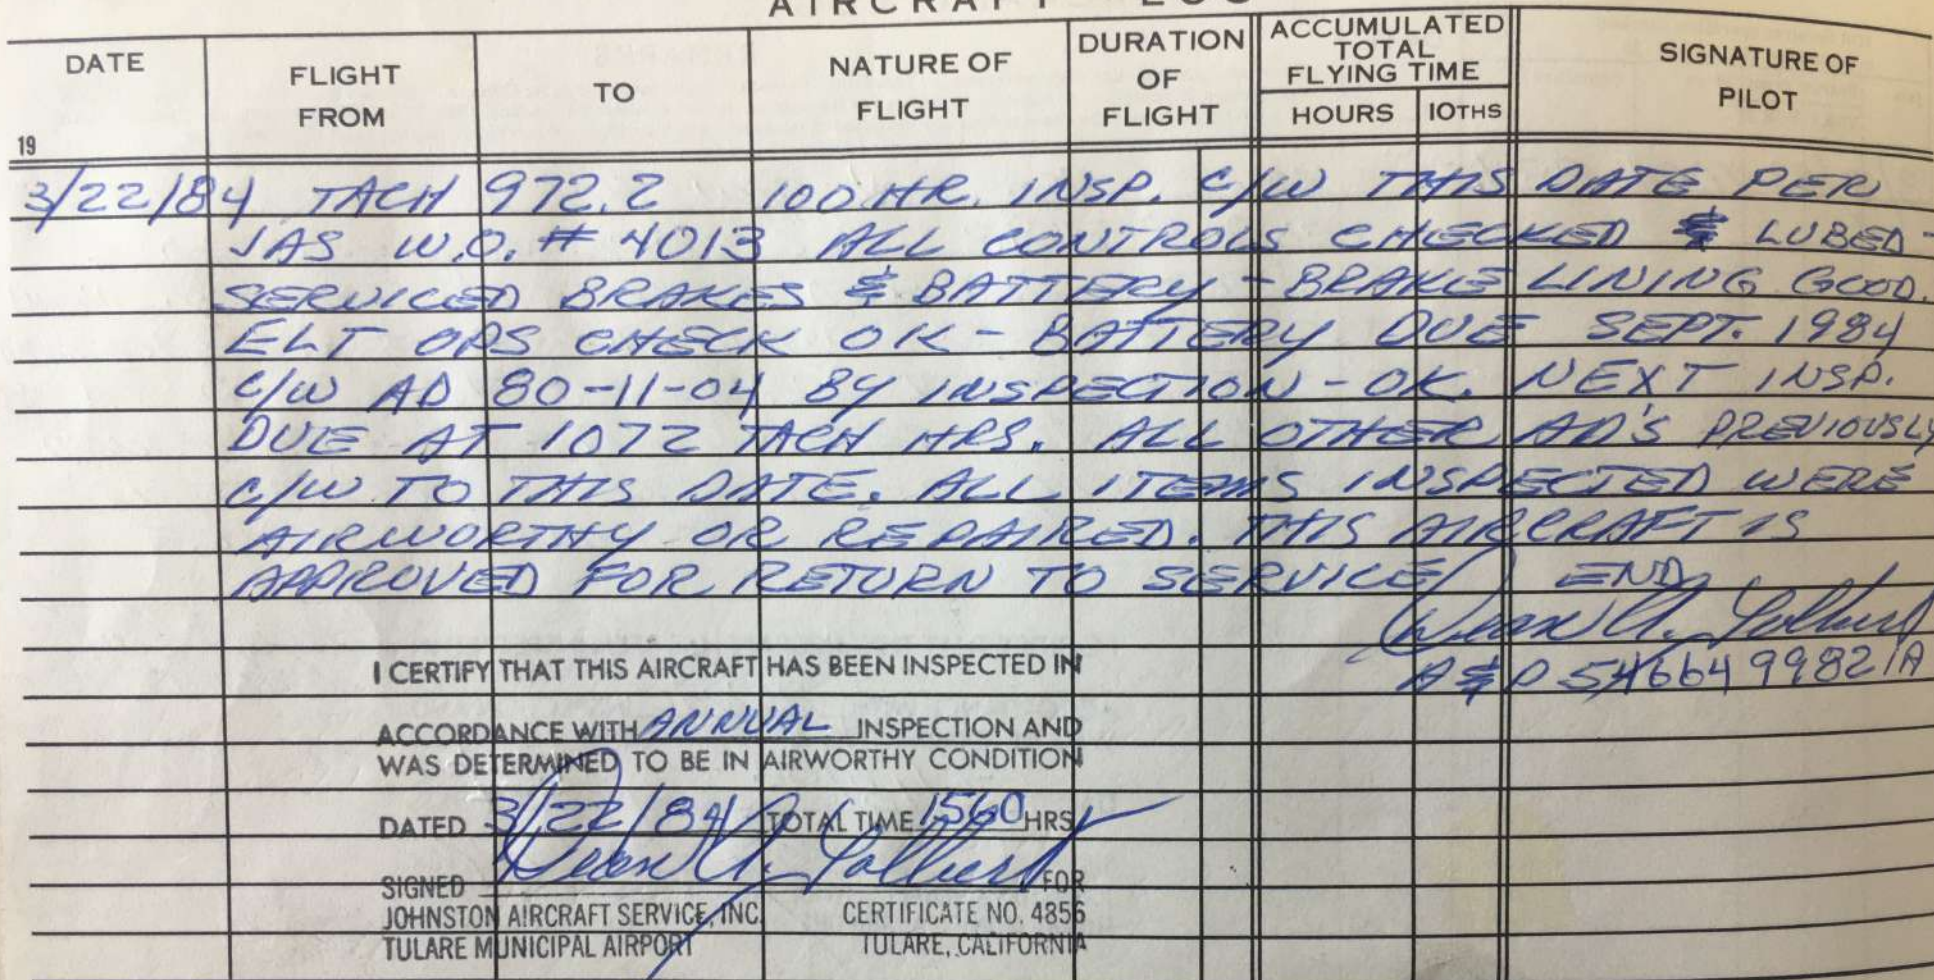 AIRCRAFT LOG
DATE
FLIGHT FROM
TO
NATURE OF FLIGHT
DURATION OF FLIGHT
ACCUMULATED TOTAL FLYING TIME
HOURS
10THS
SIGNATURE OF PILOT
19
3/22/84 TACH 972.2 100 HR. INSP. C/W THIS DATE PER
JAS W.O. # 4013 ALL CONTROLS CHECKED & LUBED-
SERVICED BRAKES & BATTERY - BRAKE LINING GOOD.
ELT OPS CHECK OK - BATTERY DUE SEPT. 1984
C/W AD 80-11-04 BY INSPECTION - OK. NEXT INSP.
DUE AT 1072 TACH HRS. ALL OTHER AD'S PREVIOUSLY
C/W TO THIS DATE. ALL ITEMS INSPECTED WERE
AIRWORTHY OR REPAIRED. THIS AIRCRAFT IS
APPROVED FOR RETURN TO SERVICE END
A&P 546649982 IA
I CERTIFY THAT THIS AIRCRAFT HAS BEEN INSPECTED IN
ACCORDANCE WITH ANNUAL INSPECTION AND
WAS DETERMINED TO BE IN AIRWORTHY CONDITION
DATED 3/22/84 TOTAL TIME 1560 HRS
SIGNED FOR
JOHNSTON AIRCRAFT SERVICE, INC. CERTIFICATE NO. 4856
TULARE MUNICIPAL AIRPORT TULARE, CALIFORNIA